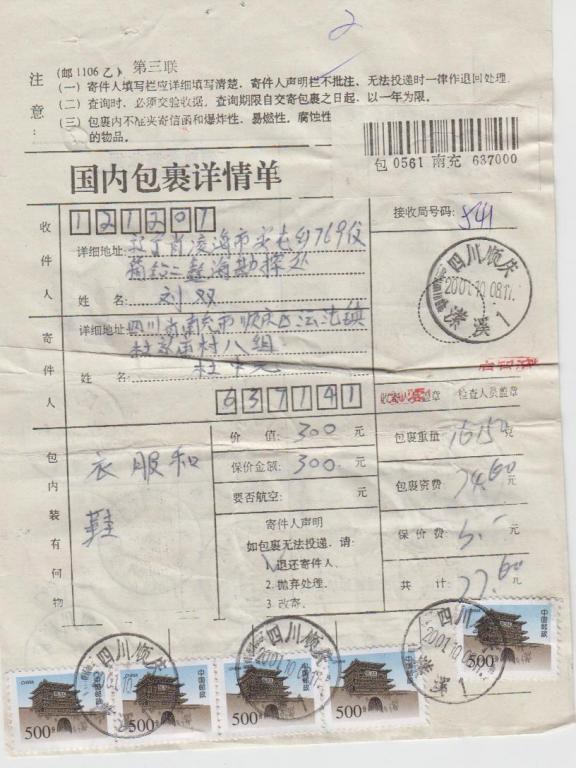 2
注意:
(邮1106乙) 第三联
(一) 寄件人填写栏应详细填写清楚。寄件人声明栏不批注、无法投递时一律作退回处理.
(二) 查询时、必须交验收据。查询期限自交寄包裹之日起、以一年为限。
(三) 包裹内不准夹寄信函和爆炸性。易燃性。腐蚀性
的物品。
包 0561 南充 637000
国内包裹详情单
接收局号码: 541
收件人
121201
详细地址: 辽宁省凌海市 769
勘探处
姓 名: 刘双
四川顺庆
2001.10.08.17
潆溪
1
寄件人
详细地址: 四川省南充市顺庆区 镇
村八组
姓 名:
637141
收寄人员盖章 检查人员盖章
包内装有何物
衣服和
鞋
价 值: 300 元
保价金额: 300 元
要否航空: 元
寄件人声明
如包裹无法投递、请:
1.退还寄件人。
2.抛弃处理。
3.改寄。
包裹重量: 克
包裹资费: 元
保 价 费: 元
共 计: 元
四川顺庆
2001.10
四川顺庆
2001.10.08.17
四川顺庆
2001.10
潆溪
1
CHINA 中国邮政 500分
CHINA 中国邮政 500分
CHINA 中国邮政 500分
CHINA 中国邮政 500分
中国邮政 500分